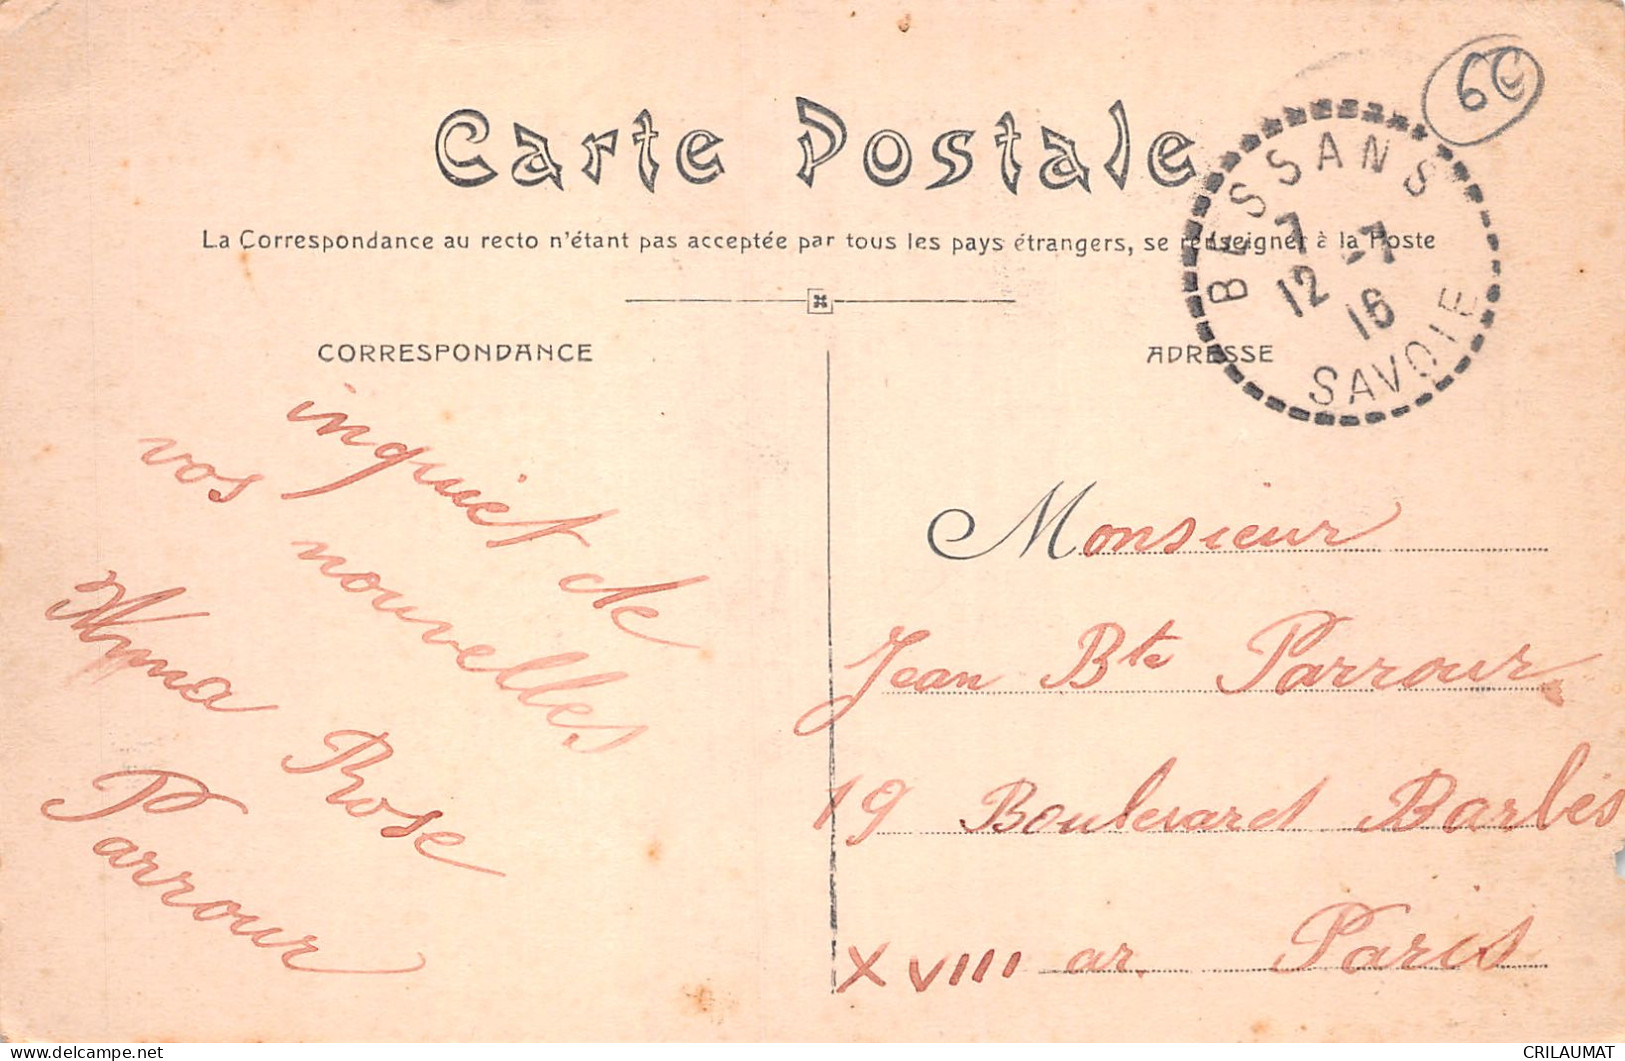 Carte Postale
La Correspondance au recto n'étant pas acceptée par tous les pays étrangers, se renseigner à la Poste
BESSANS
7 -7
12 16
SAVOIE
CORRESPONDANCE
inquiet de
vos nouvelles
Rose
Parrour
ADRESSE
Monsieur
Jean Bte Parrour
19 Boulevard Barbès
XVIII ar. Paris
delcampe.net
CRILAUMAT